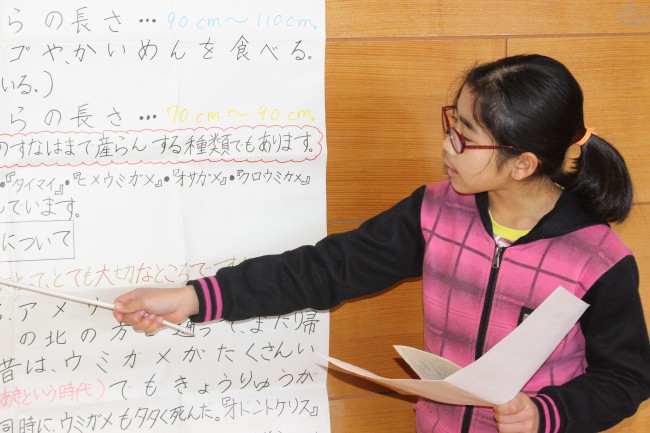 らの長さ…90cm〜110cm。
ゴや、かいめんを食べる。
いる。)
らの長さ…70cm〜90cm。
のすなはまで産らんする種類でもあります。
・『タイマイ』・『ヒメウミガメ』・『オサガメ』・『クロウミガメ』
しています。
について
とって、とても大切なところです
アメリ
の北の方を通って、また帰
昔は、ウミガメがたくさんい
あきという時代)でもきょうりゅうが
同時に、ウミガメも多く死んだ。『オドントケリス』